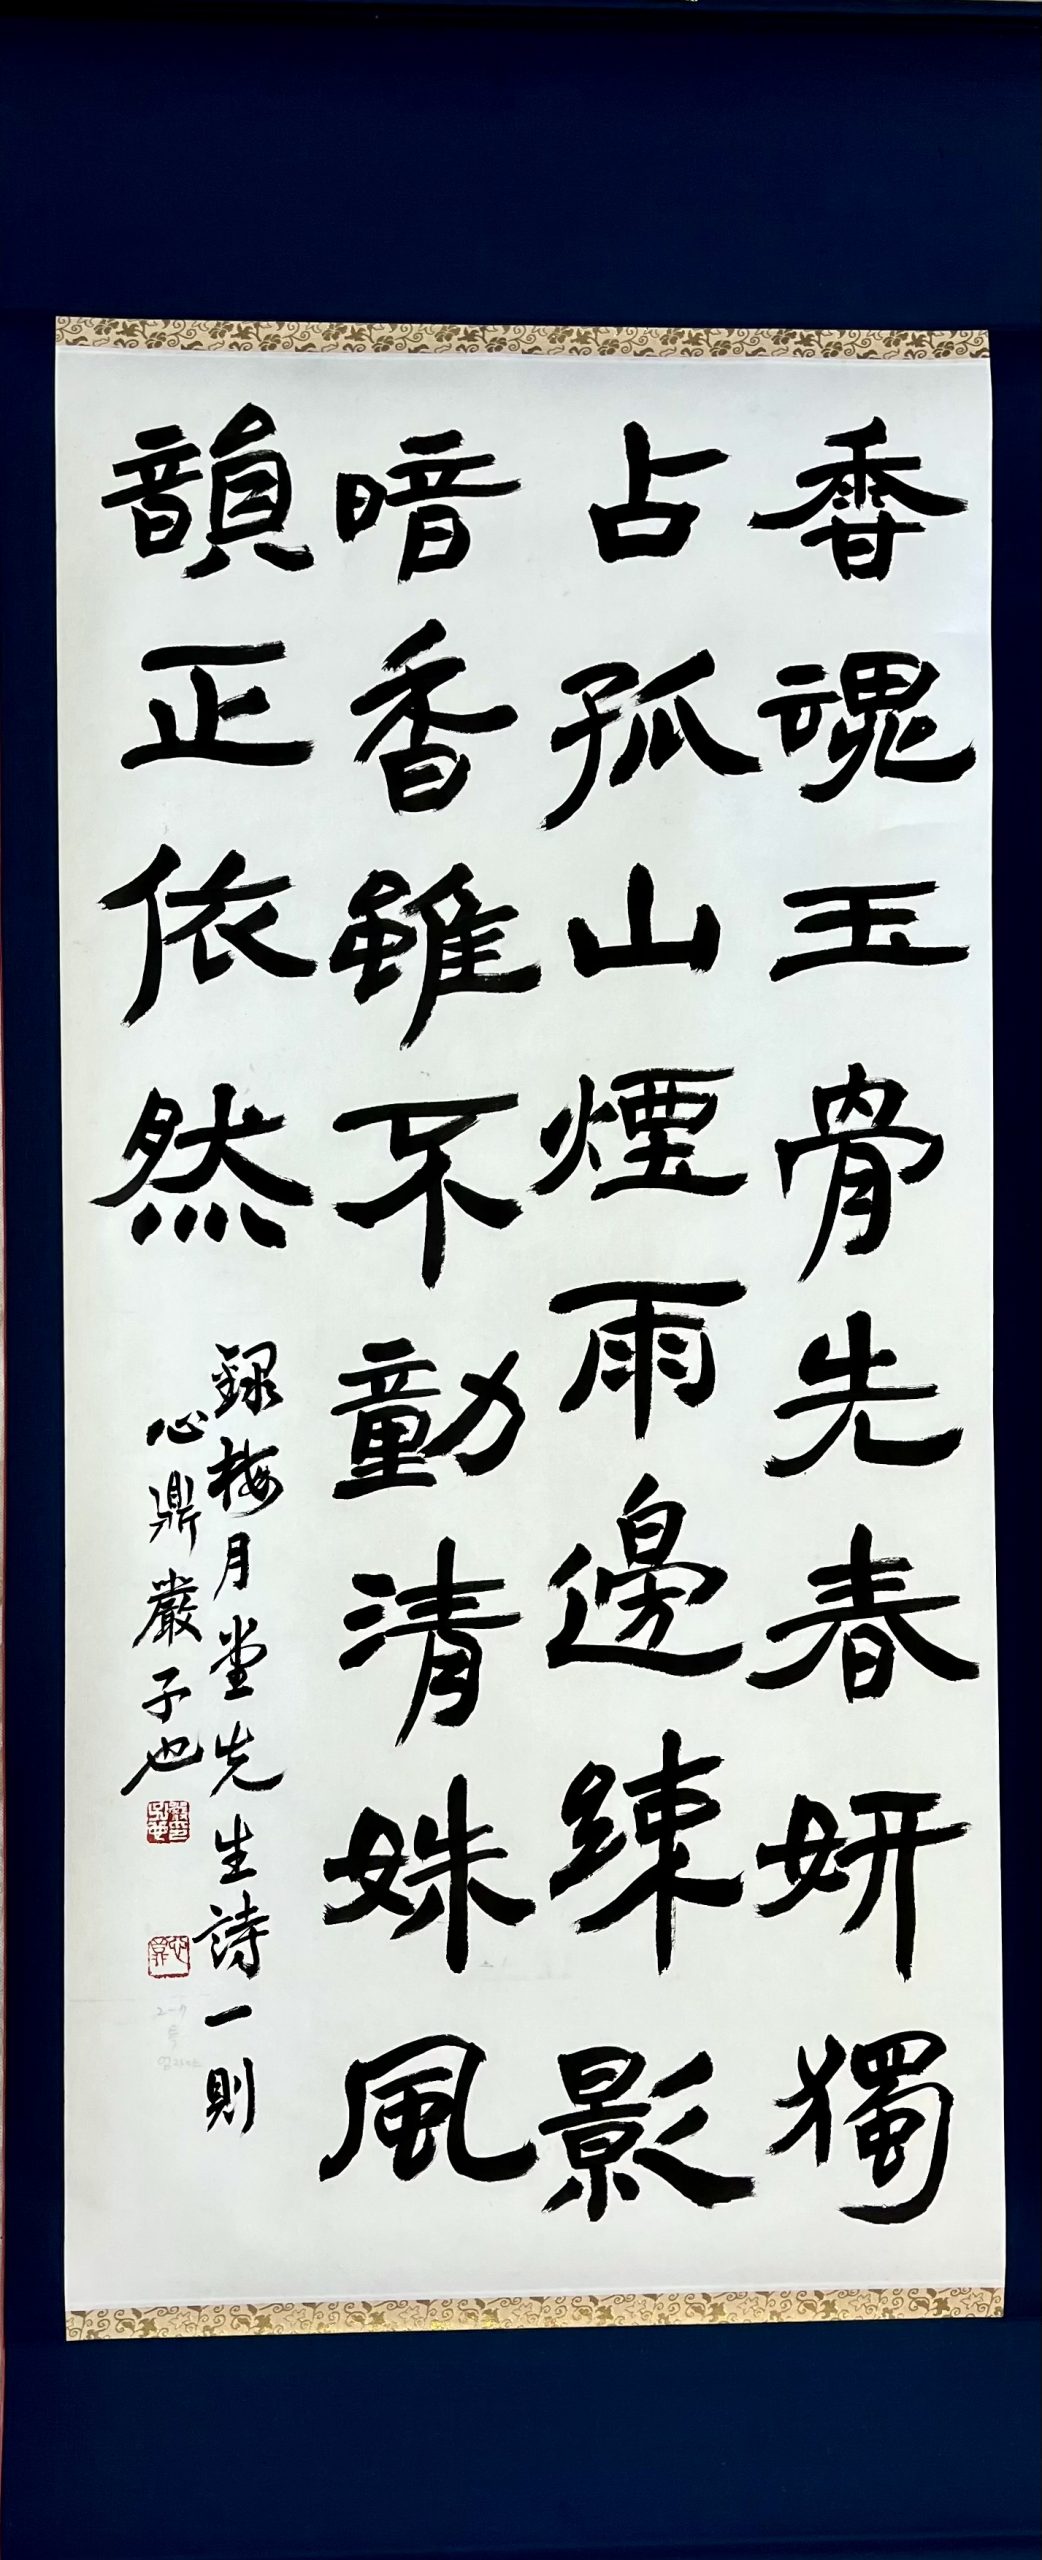 香魂玉骨先春妍獨
占孤山煙雨邊疎影
暗香雖不動清姝風
韻正依然
録梅月堂先生詩一則
心鼎嚴子也